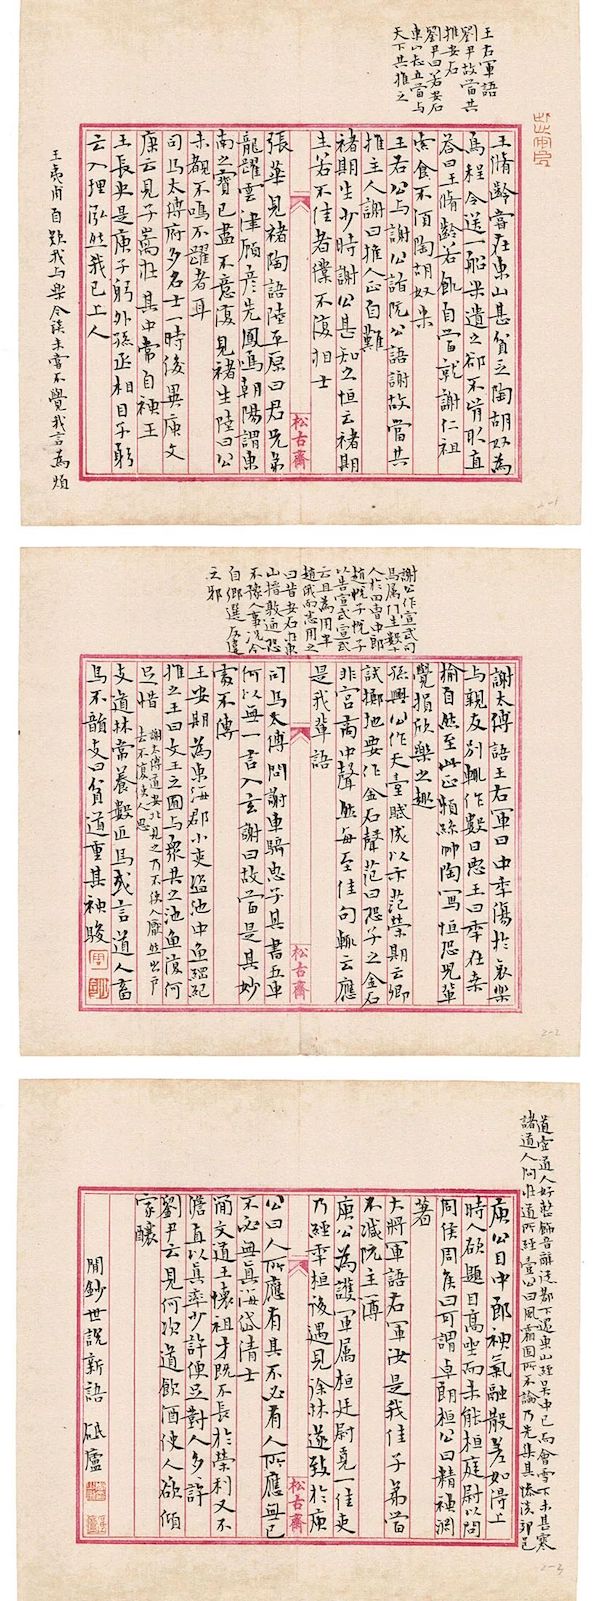 王右軍語
劉尹故當共
推安石
劉尹曰若安石
東山志立當与
天下共推之
王脩齡嘗在東山甚貧乏陶胡奴為
烏程令送一船米遺之却不肯取直
荅曰王脩齡若飢自當就謝仁祖
索食不須陶胡奴米
王右公与謝公詣阮公語謝故當共
推主人謝曰推人正自難
褚期生少時謝公甚知之恒云褚期
生若不佳者僕不復相士
松古齋
張華見褚陶語陸平原曰君兄弟
龍躍雲津顧彥先鳳鳴朝陽謂東
南之寶已盡不意復見褚生陸曰公
未覩不鳴不躍者耳
司馬太傅府多名士一時儁異庾文
康云見子嵩在其中常自神王
王長史是庾子躬外孫丞相目子躬
云入理泓然我已上人
王夷甫自歎我与樂令談未嘗不覺我言為煩
2-1
謝公作宣武司
馬属門生數十
人於田曹中郎
趙悅子悅子
以告宣武宣武
云且為用半
趙俄而悉用之
曰昔安石在東
山搢敦逼恐
不豫人事况今
自鄉選反違
之邪
謝太傅語王右軍曰中年傷於哀樂
与親友別輒作數日惡王曰年在桑
榆自然至此正賴絲竹陶寫恒恐兒輩
覺損欣樂之趣
孫興公作天臺賦成以示范榮期云卿
試擲地要作金石聲范曰恐子之金石
非宮商中聲然每至佳句輒云應
是我輩語
松古齋
司馬太傅問謝車騎惠子其書五車
何以無一言入玄謝曰故當是其妙
處不傳
王安期為東海郡小吏盜池中魚綱紀
推之王曰文王之囿与衆共之池魚復何
足惜
謝太傅道安北見之乃不使人厭然出戶
去不復使人思
支道林常養數匹馬或言道人畜
馬不韻支曰貧道重其神駿
2-2
道壹道人好整飾音辭從都下還東山經吳中已而會雪下未甚寒
諸道人問在道所經壹公曰風霜固所不論乃先集其慘淡郊邑
庾公目中郎神氣融散差如得上
時人欲題目高坐而未能桓庭尉以問
周侯周侯曰可謂卓朗桓公曰精神淵
著
大將軍語右軍汝是我佳子弟當
不減阮主簿
庾公為護軍属桓廷尉覓一佳吏
乃經年桓後遇見徐遂致於庾
松古齋
公曰人所應有其不必有人所應無已
不必無真海岱清士
簡文道王懷祖才既不長於榮利又不
澹直以真率少許便足對人多許
劉尹云見何次道飲酒使人欲傾
家釀
閒鈔世說新語 砥廬
2-3